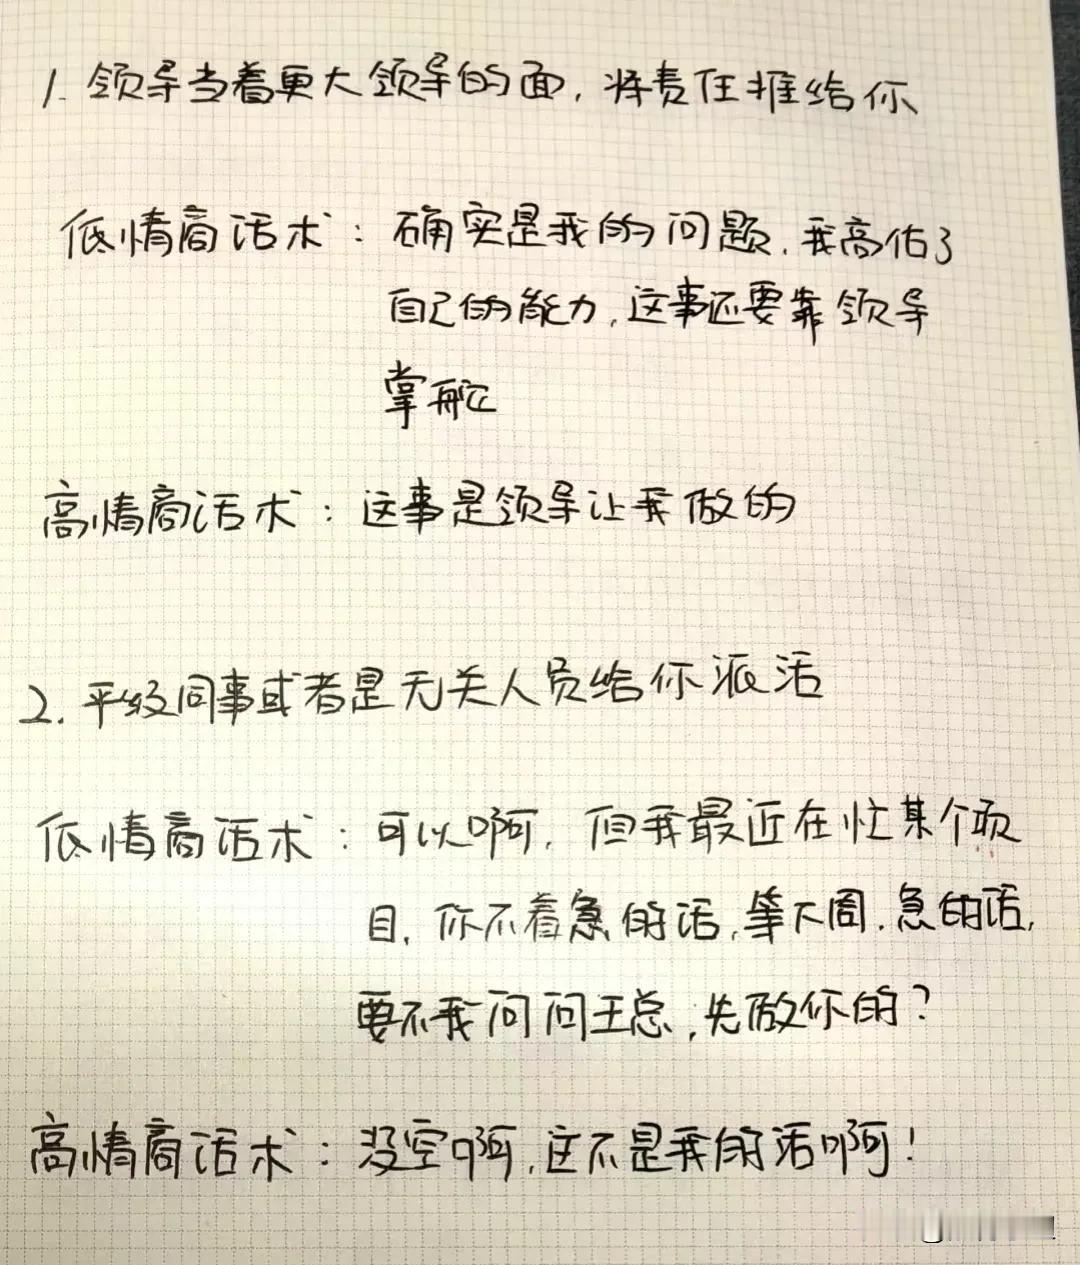 1. 领导当着更大领导的面，将责任推给你
低情商话术：确实是我的问题，我高估了
自己的能力，这事还要靠领导
掌舵
高情商话术：这事是领导让我做的
2. 平级同事或者是无关人员给你派活
低情商话术：可以啊，但我最近在忙某个项
目，你不着急的话，等下周，急的话，
要不我问问王总，先做你的？
高情商话术：没空啊，这不是我的活啊！